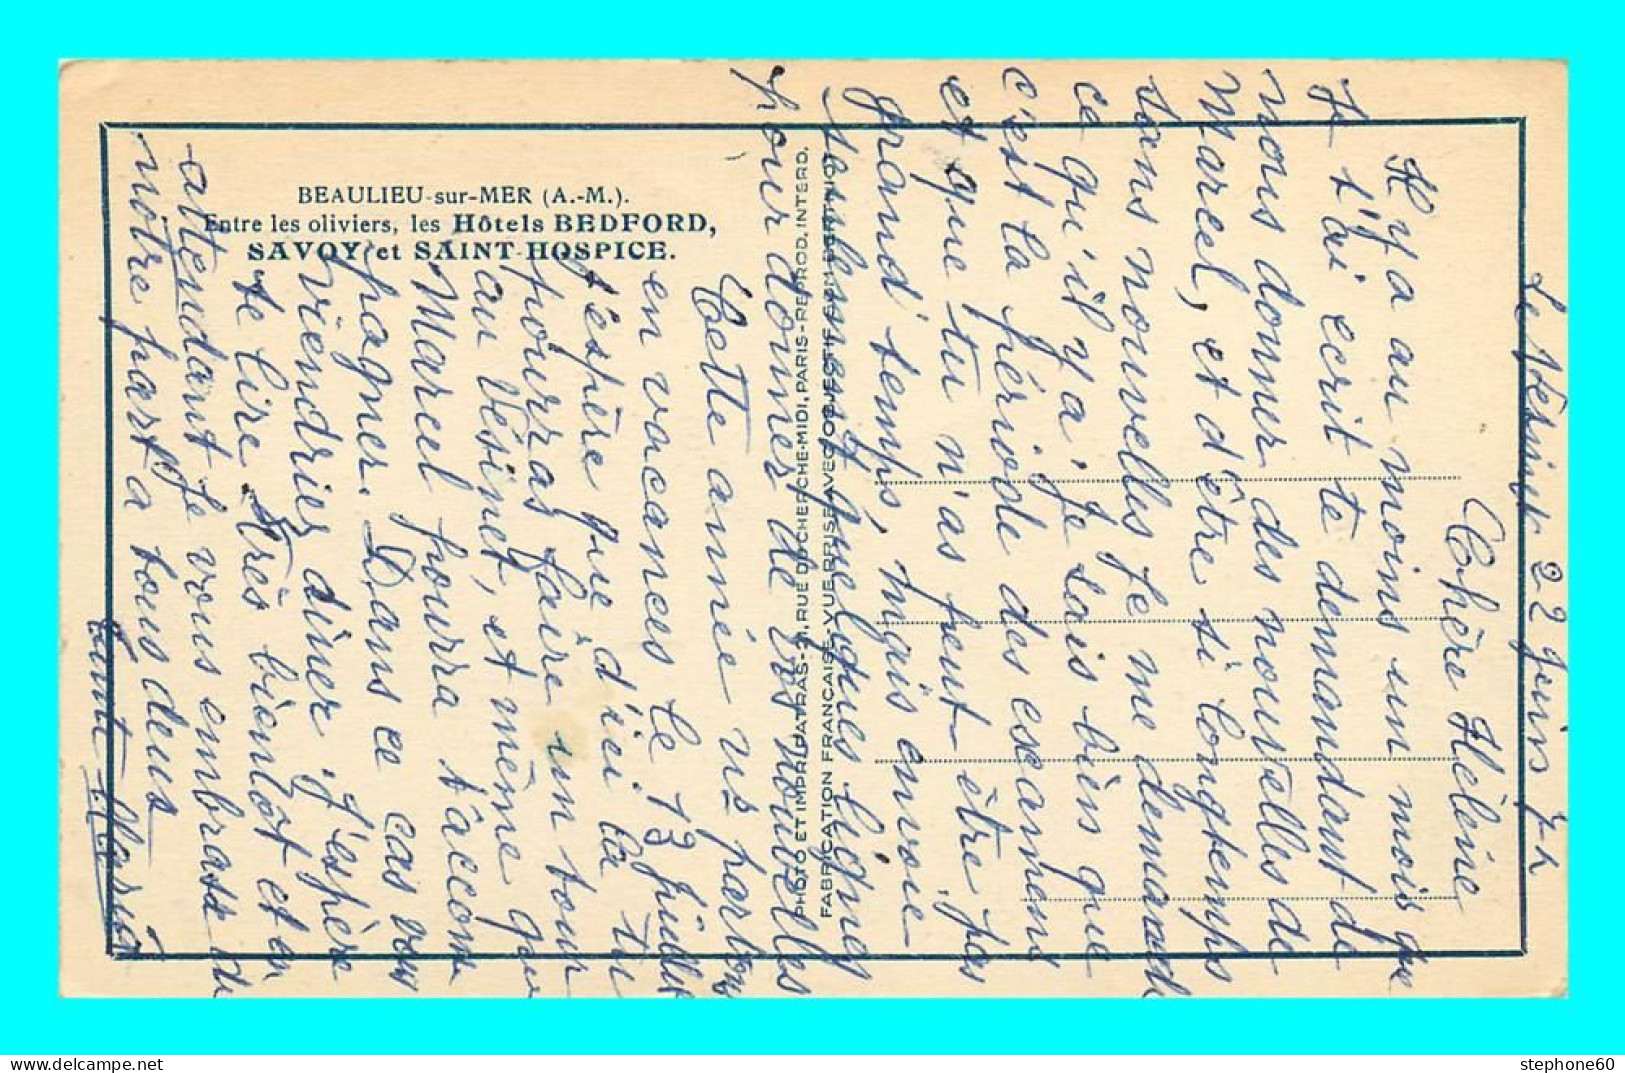 BEAULIEU-sur-MER (A.-M.).
Entre les oliviers, les Hôtels BEDFORD,
SAVOY et SAINT-HOSPICE.
PHOTO ET IMPR. PATRAS-31, RUE DU CHERCHE-MIDI, PARIS-REPROD. INTERD.
FABRICATION FRANCAISE, VUE PRISE AVEC OBJECTIF BOM BERTHIOT
Le Vésinet 22 Juin
Chère Hélène
Il y a au moins un mois que
Je t'ai ecrit te demandant de
nous donner des nouvelles de
Marcel, et d'être si longtemps
sans nouvelles je me demande
ce qu'il y a. Je sais bien que
c'est la période des examens
et que tu n'as peut être pas
grand temps, mais envoie
seulement quelques lignes
pour donner de vos nouvelles
Cette année ns partons
en vacances le 13 Juillet
t'espère que d'ici la tu
pourras faire un tour
au Vésinet, et même que
Marcel pourra t'accom
pagner. Dans ce cas vous
viendriez diner j'espère
te lire très bientôt et en
attendant je vous embrasse de
notre part a tous deux
Tante Maria
stephone60